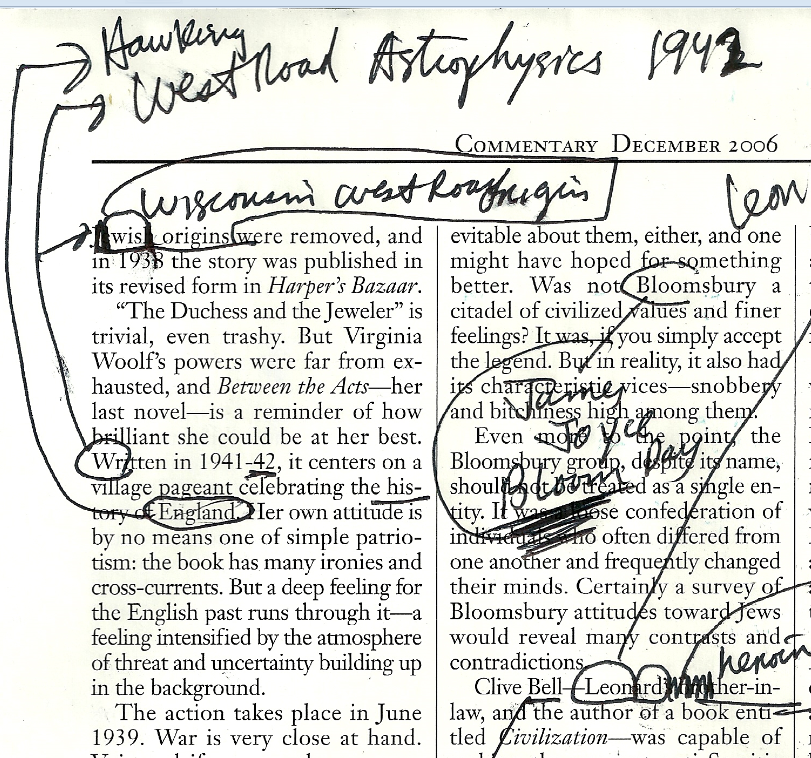 Hawking
West Road Astrophysics 1942
COMMENTARY DECEMBER 2006
Wisconsin West Road origin
Leon
Jewish origins were removed, and
in 1938 the story was published in
its revised form in Harper's Bazaar.
"The Duchess and the Jeweler" is
trivial, even trashy. But Virginia
Woolf's powers were far from ex-
hausted, and Between the Acts—her
last novel—is a reminder of how
brilliant she could be at her best.
Written in 1941-42, it centers on a
village pageant celebrating the his-
tory of England. Her own attitude is
by no means one of simple patrio-
tism: the book has many ironies and
cross-currents. But a deep feeling for
the English past runs through it—a
feeling intensified by the atmosphere
of threat and uncertainty building up
in the background.
The action takes place in June
1939. War is very close at hand.
evitable about them, either, and one
might have hoped for something
better. Was not Bloomsbury a
citadel of civilized values and finer
feelings? It was, if you simply accept
the legend. But in reality, it also had
its characteristic vices—snobbery
and bitchiness high among them.
James
Joyce
Bloom Day
Even more to the point, the
Bloomsbury group, despite its name,
should not be treated as a single en-
tity. It was a loose confederation of
individuals who often differed from
one another and frequently changed
their minds. Certainly a survey of
Bloomsbury attitudes toward Jews
would reveal many contrasts and
contradictions.
heroin
Clive Bell—Leonard's brother-in-
law, and the author of a book enti-
tled Civilization—was capable of